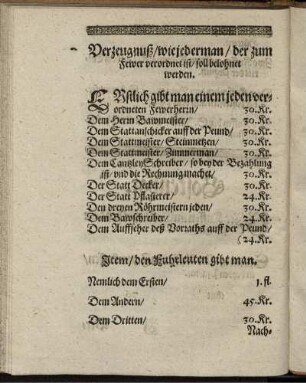 Verzeugnuß / wie jederman / der zum
Fewer verordnet ist / soll belohnet
werden.
ERstlich gibt man einem jeden ver-
ordneten Fewerherrn / 30. Kr.
Dem Herrn Bawmeister / 30. Kr.
Dem Stattanschicker auff der Peund / 30. Kr.
Dem Stattmeister / Steinmetzen / 30. Kr.
Dem Stattmeister / Zimmerman / 30. Kr.
Dem Cantzley Schreiber / so bey der Bezahlung
ist / vnd die Rechnung machet / 30. Kr.
Der Statt Decker / 30. Kr.
Der Statt Pflasterer / 24. Kr.
Den dreyen Röhrmeistern jeden / 30. Kr.
Dem Bawschreiber / 24. Kr.
Dem Auffseher deß Vorraths auff der Peund /
(24. Kr.
Item / den Fuhrleuten gibt man.
Nemlich dem Ersten / 1. fl.
Dem Andern / 45. Kr.
Dem Dritten / 30. Kr.
Nach-